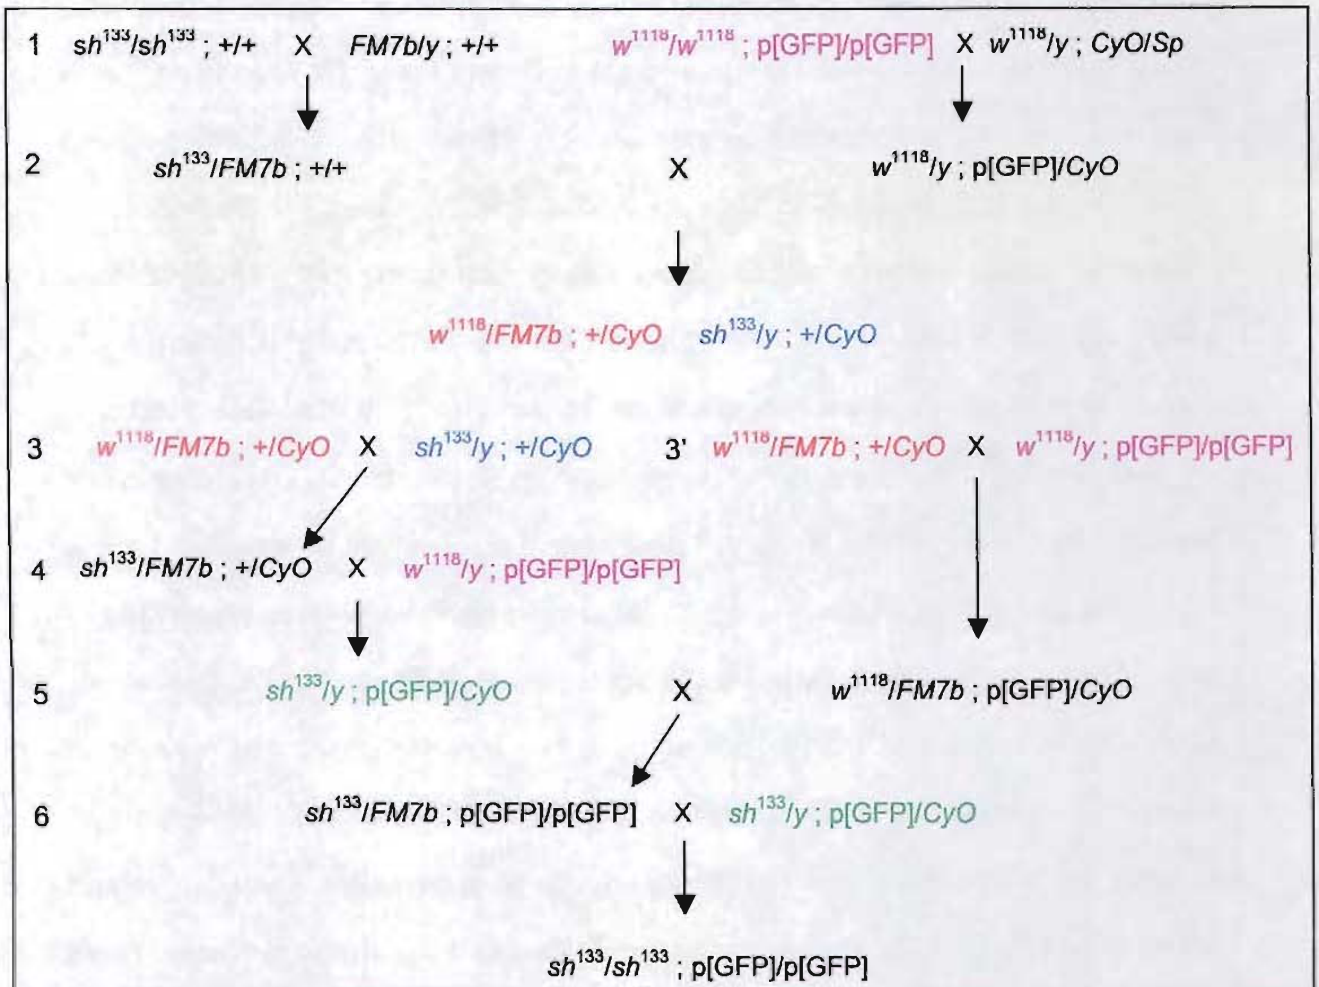 1 sh¹³³/sh¹³³ ; +/+ X FM7b/y ; +/+ w¹¹¹⁸/w¹¹¹⁸ ; p[GFP]/p[GFP] X w¹¹¹⁸/y ; CyO/Sp
2 sh¹³³/FM7b ; +/+ X w¹¹¹⁸/y ; p[GFP]/CyO
w¹¹¹⁸/FM7b ; +/CyO sh¹³³/y ; +/CyO
3 w¹¹¹⁸/FM7b ; +/CyO X sh¹³³/y ; +/CyO 3' w¹¹¹⁸/FM7b ; +/CyO X w¹¹¹⁸/y ; p[GFP]/p[GFP]
4 sh¹³³/FM7b ; +/CyO X w¹¹¹⁸/y ; p[GFP]/p[GFP]
5 sh¹³³/y ; p[GFP]/CyO X w¹¹¹⁸/FM7b ; p[GFP]/CyO
6 sh¹³³/FM7b ; p[GFP]/p[GFP] X sh¹³³/y ; p[GFP]/CyO
sh¹³³/sh¹³³ ; p[GFP]/p[GFP]